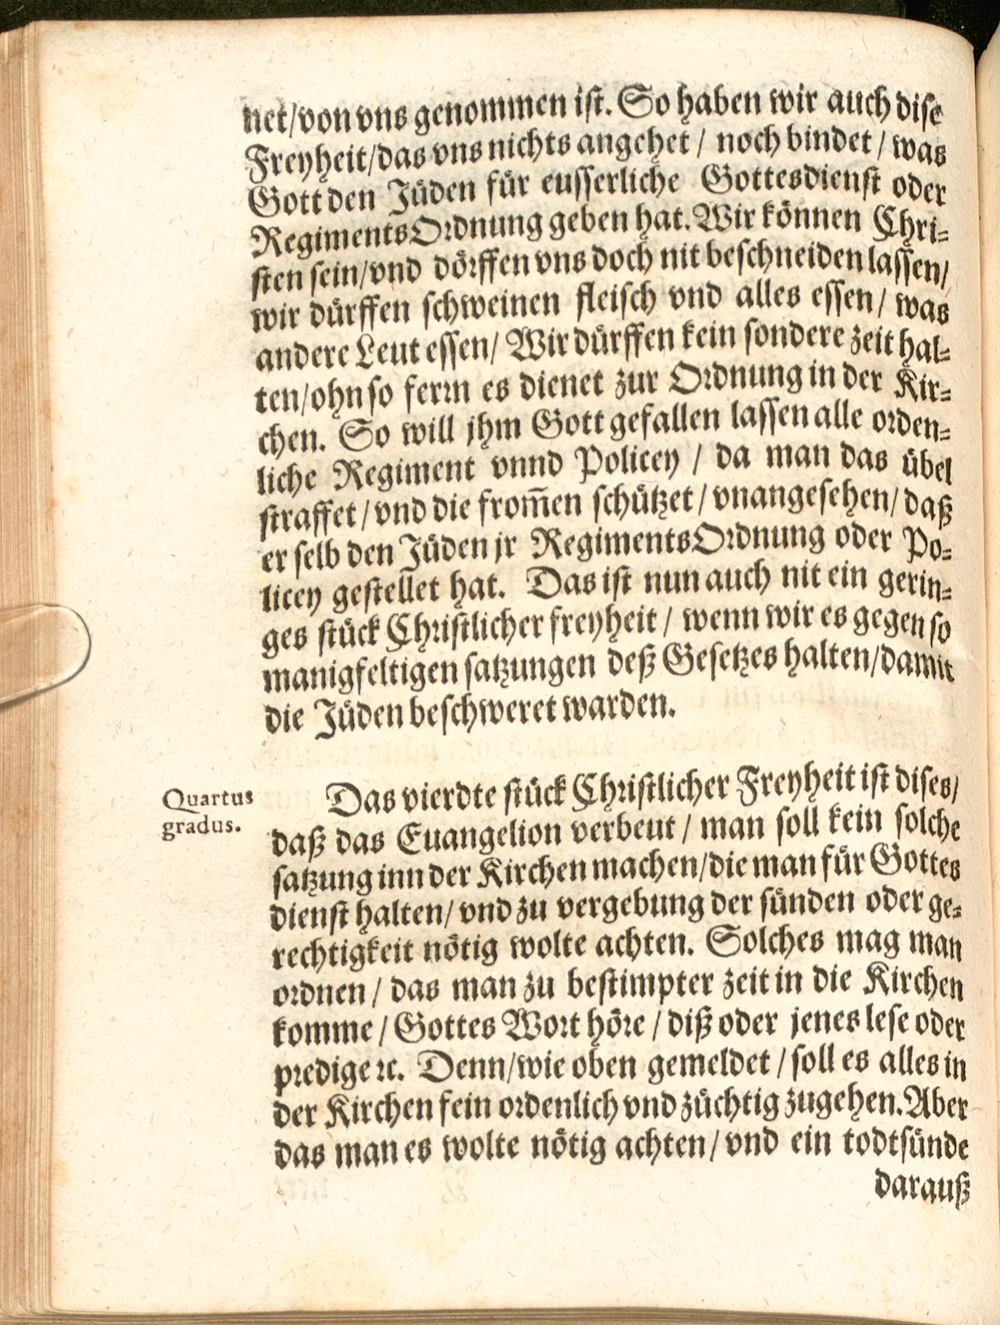 net/von vns genommen ist. So haben wir auch dise
Freyheit/das vns nichts angehet / noch bindet / was
Gott den Jüden für eusserliche Gottesdienst oder
RegimentsOrdnung geben hat. Wir können Chri-
sten sein/vnd dörffen vns doch nit beschneiden lassen/
wir dürffen schweinen fleisch vnd alles essen / was
andere Leut essen/ Wir dürffen kein sondere zeit hal-
ten/ohn so ferrn es dienet zur Ordnung in der Kir-
chen. So will jhm Gott gefallen lassen alle orden-
liche Regiment vnnd Policey / da man das übel
straffet / vnd die from̃en schützet / vnangesehen / daß
er selb den Jüden jr RegimentsOrdnung oder Po-
licey gestellet hat. Das ist nun auch nit ein gerin-
ges stück Christlicher freyheit / wenn wir es gegen so
manigfeltigen satzungen deß Gesetzes halten/damit
die Jüden beschweret warden.
Quartus
gradus.
Das vierdte stück Christlicher Freyheit ist dises/
daß das Euangelion verbeut / man soll kein solche
satzung inn der Kirchen machen/die man für Gottes
dienst halten/ vnd zu vergebung der sünden oder ge-
rechtigkeit nötig wolte achten. Solches mag man
ordnen / das man zu bestimpter zeit in die Kirchen
komme / Gottes Wort höre / diß oder jenes lese oder
predige ꝛc. Denn/wie oben gemeldet / soll es alles in
der Kirchen fein ordenlich vnd züchtig zugehen. Aber
das man es wolte nötig achten/ vnd ein todtsünde
darauß